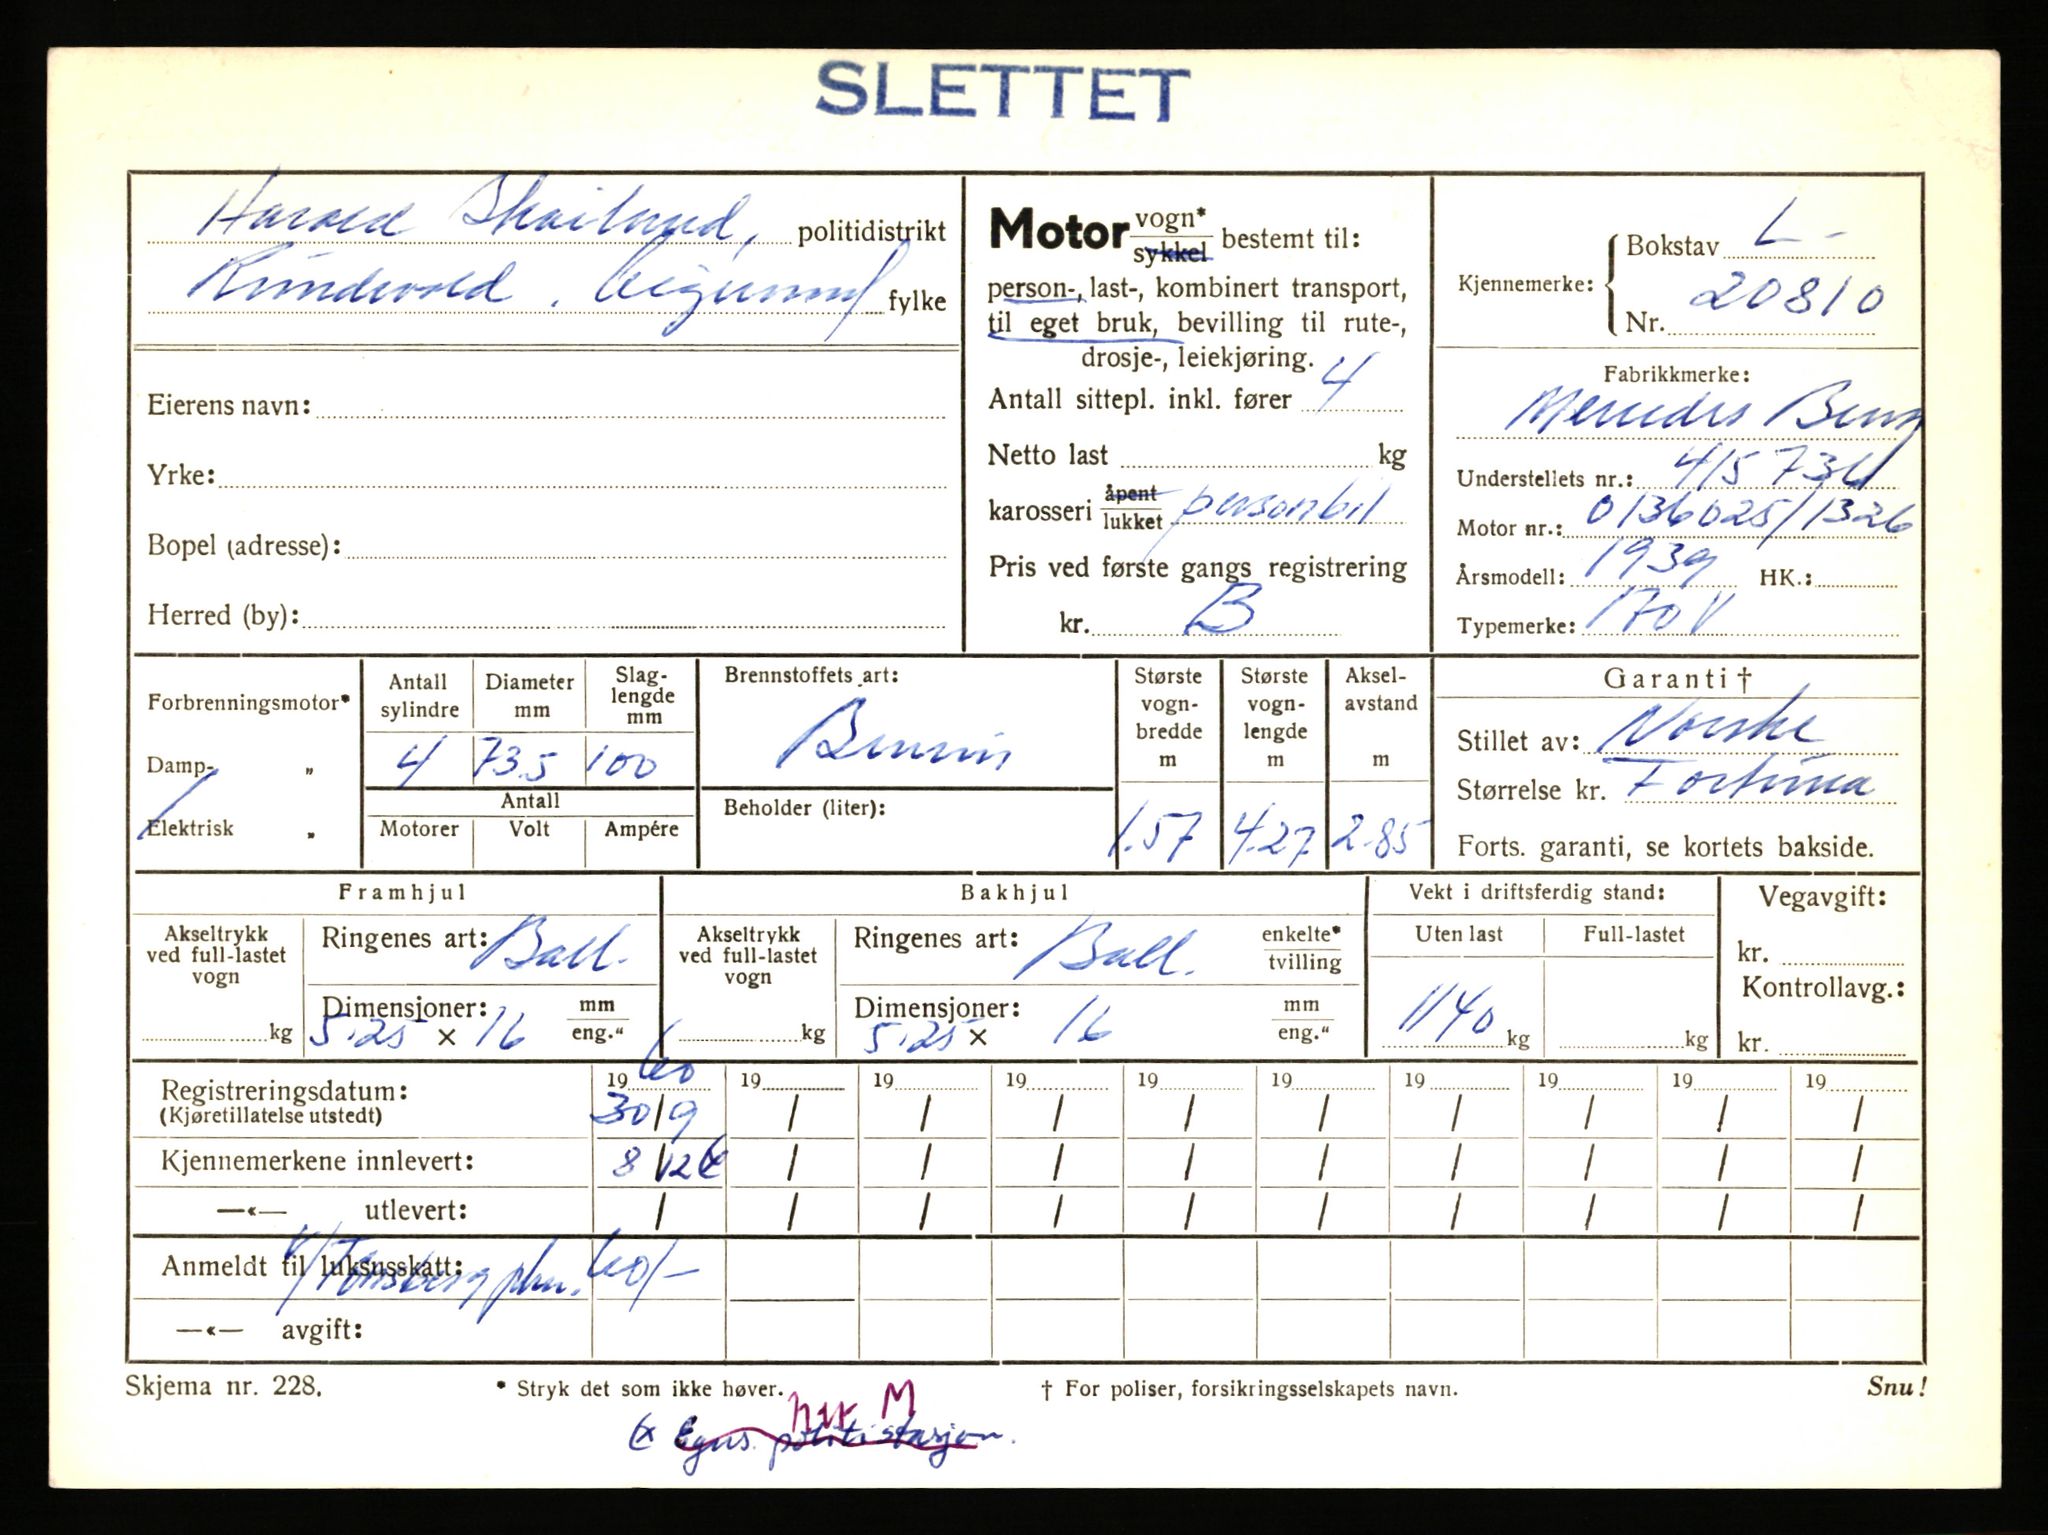 SLETTET
Harald politidistrikt
fylke
Eierens navn:
Yrke:
Bopel (adresse):
Herred (by):
Motor vogn* sykkel bestemt til:
person-, last-, kombinert transport,
til eget bruk, bevilling til rute-,
drosje-, leiekjøring.
Antall sittepl. inkl. fører 4
Netto last kg
karosseri åpent lukket personbil
Pris ved første gangs registrering
kr. B
Kjennemerke: Bokstav L-
Nr. 20810
Fabrikkmerke:
Mercedes Benz
Understellets nr.:
Motor nr.: 0136025/1326
Årsmodell: 1939 HK.:
Typemerke: 170 V
Forbrenningsmotor*
Damp- „
Elektrisk „
Antall sylindre
Diameter mm
Slag-lengde mm
4 73.5 100
Antall
Motorer Volt Ampére
Brennstoffets art:
Bensin
Beholder (liter):
Største vogn-bredde m
1.57
Største vogn-lengde m
4.27
Aksel-avstand m
2.85
Garanti †
Stillet av: Norske
Størrelse kr. Fortuna
Forts. garanti, se kortets bakside.
Framhjul
Akseltrykk ved full-lastet vogn
kg
Ringenes art: Ball.
Dimensjoner: mm
5.25 × 16 eng."
Bakhjul
Akseltrykk ved full-lastet vogn
kg
Ringenes art: Ball. enkelte* tvilling
Dimensjoner: mm
5.25 × 16 eng."
Vekt i driftsferdig stand:
Uten last Full-lastet
1140 kg kg
Vegavgift:
kr.
Kontrollavg.:
kr.
Registreringsdatum: 19 60 19 19 19 19 19 19 19 19 19
(Kjøretillatelse utstedt) 30/9 / / / / / / / / /
Kjennemerkene innlevert: 8/12 / / / / / / / / /
—«— utlevert: / / / / / / / / / /
Anmeldt til luksusskatt:
v/Tønsberg pkm. 60/-
—«— avgift:
Skjema nr. 228. * Stryk det som ikke høver. † For poliser, forsikringsselskapets navn. Snu!
M
politistasjon.